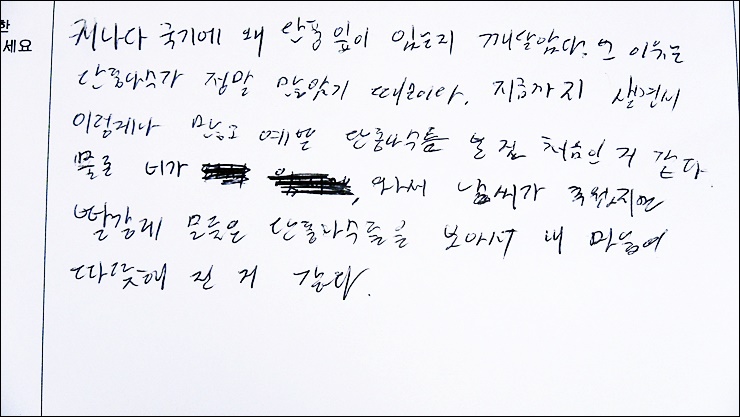 한
세요
캐나다 국기에 왜 단풍잎이 있는지 깨달았다. 그 이유는
단풍나무가 정말 많았기 때문이다. 지금까지 살면서
이렇게나 많고 예쁜 단풍나무를 본 건 처음인 거 같다
물론 비가 , 와서 날씨가 추웠지만
빨갛게 물듯은 단풍나무들을 보아서 내 마음이
따뜻해 진 거 같다.